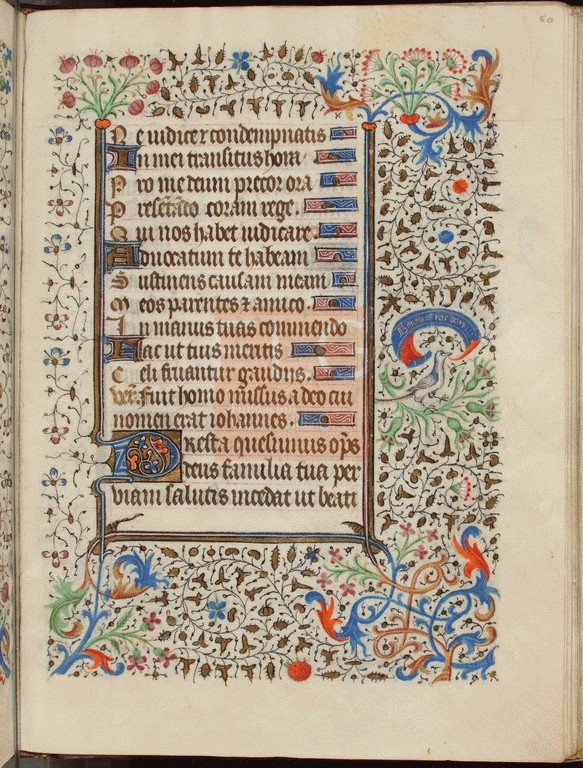 60
Ne iudicer condempnatis
In mei transitus hora
Pro me deum precor ora
Presētādo coram rege.
Qui nos habet iudicare.
Aduocatum te habeam
Sustinens causam meam
Meos parentes ⁊ amico.
In manus tuas commendo
Hac ut tuis meritis
Celi fruantur gaudijs.
Fuit homo missus a deo cui
nomen erat iohannes.
Presta quesumus op̄s
deus familia tua per
viam salutis incedat ut beati